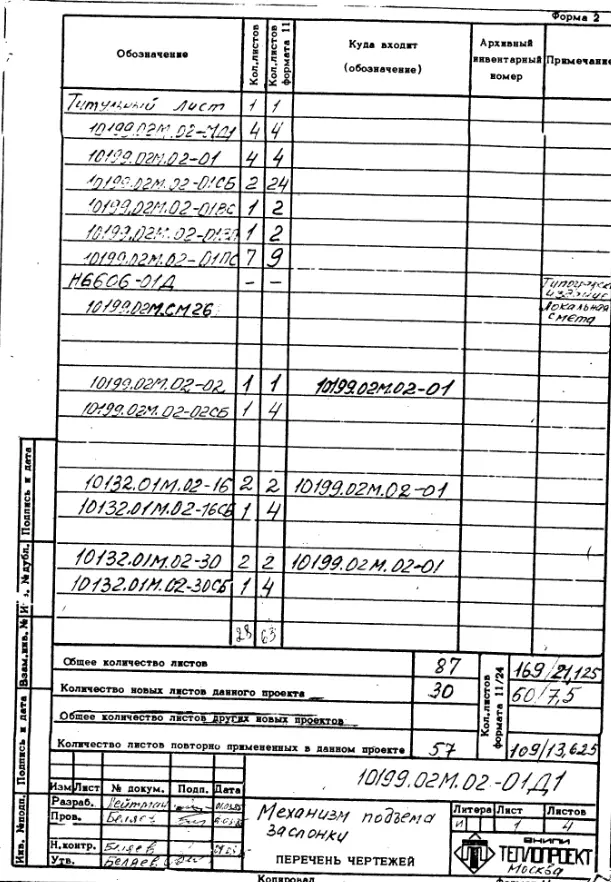 Форма 2
Обозначение Кол.листов Кол.листов формата 11 Куда входит (обозначение) Архивный инвентарный номер Примечание
Титульный лист 1 1
10199.02М.02-01Д1 4 4
10199.02М.02-01 4 4
10199.02М.02-01СБ 2 24
10199.02М.02-01ВС 1 2
10199.02М.02- 1 2
10199.02М.02-01ПС 7 9
Н6606-01Д — —
10199.02М.СМ26 Локальная смета
10199.02М.02-02 1 1 10199.02М.02-01
10199.02М.02-02СБ 1 4
10132.01М.02-16 2 2 10199.02М.02-01
10132.01М.02-16СБ 1 4
10132.01М.02-30 2 2 10199.02М.02-01
10132.01М.02-30СБ 1 4
28 63
Общее количество листов 87 169/21,125
Количество новых листов данного проекта 30 60/7,5
Общее количество листов других новых проектов
Количество листов повторно примененных в данном проекте 57 109/13,625
Кол.листов формата 11/24
Подпись и дата
№ дубл.
Взам.инв.№
Подпись и дата
Инв. №подл.
10199.02М.02-01Д1
Изм Лист № докум. Подп. Дата
Разраб. Рейтман
Пров. Беляев
Н.контр. Беляев
Утв. Беляев
Механизм подъема
заслонки
ПЕРЕЧЕНЬ ЧЕРТЕЖЕЙ
Литера Лист Листов
И 1 4
ВНИПИ
ТЕПЛОПРОЕКТ
Москва
Копировал Формат